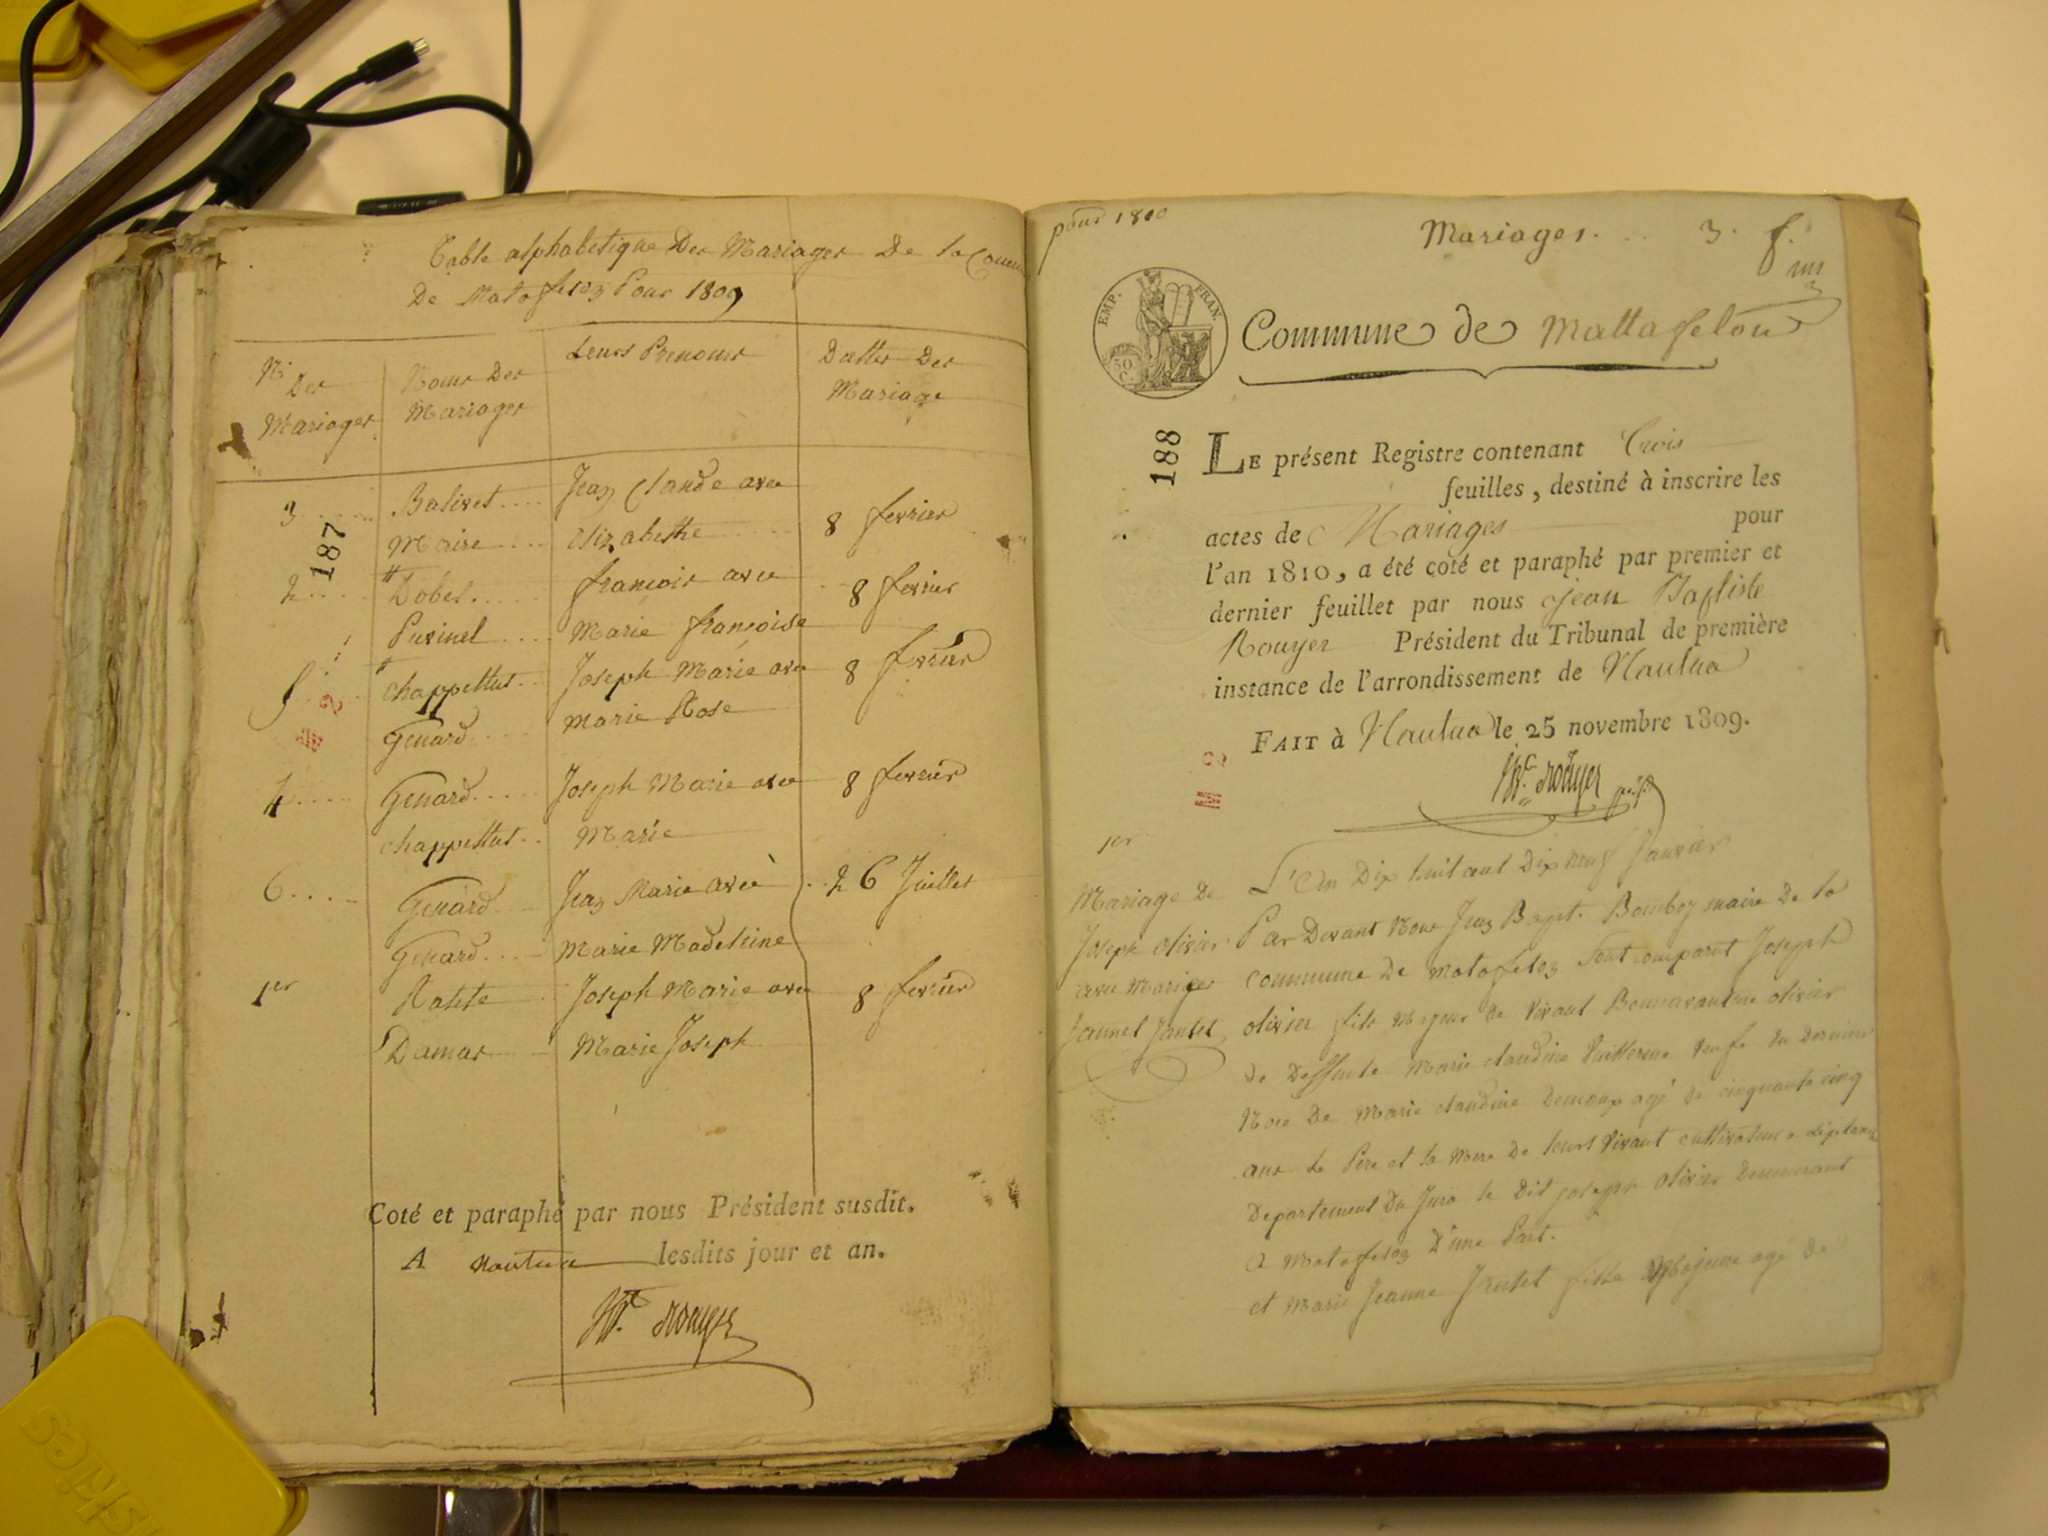 Table alphabetique Des Mariages De la Commu
De Matafelon Pour 1809
Nos Des Mariages
Noms Des Mariages
Leurs Prenoms
Dattes Des Mariage
3 Balivet Jean Claude avec
Maire elizabethe 8 fevrier
2 Dobet francois avec 8 fevrier
Puvinel Marie francoise
5 chappellut Joseph Marie avec 8 fevrier
Genard Marie Rose
4 Genard Joseph Marie avec 8 fevrier
chappellut Marie
6 Genard Jean Marie avec 26 Juillet
Genard Marie Madeleine
1er Ratite Joseph Marie avec 8 fevrier
Damas Marie Joseph
187
Coté et paraphé par nous Président susdit.
A Nantua lesdits jour et an.
Bte. Rouyer
pour 1810
Mariages. 3. f.
EMP. FRAN.
50 C.
Commune de Mattafelon
188
LE présent Registre contenant Trois
feuilles, destiné à inscrire les
actes de Mariages pour
l'an 1810, a été coté et paraphé par premier et
dernier feuillet par nous Jean Baptiste
Rouyer Président du Tribunal de première
instance de l'arrondissement de Nantua
FAIT à Nantua le 25 novembre 1809.
Bte. Rouyer
1er
Mariage De
Joseph olivier
avec Marie
Jeanne Jantet
L'an Dix huit cent Dix neuf Janvier
Par Devant Nous Jean Bapt. Bomboy maire De la
commune De Matafelon sont comparut Joseph
olivier fils Majeur de vivant Bonnavanture olivier
de Deffunte Marie claudine Vuillerme veufe en Derniere
Noce De Marie claudine Demoux agé de cinquante cinq
ans Le Pere et la Mere De leurs vivant cultivateur a
Departement Du Jura le Dit Joseph olivier Demeurant
a Matafelon D'une Part.
et Marie Jeanne Jantet fille Majeure agé de